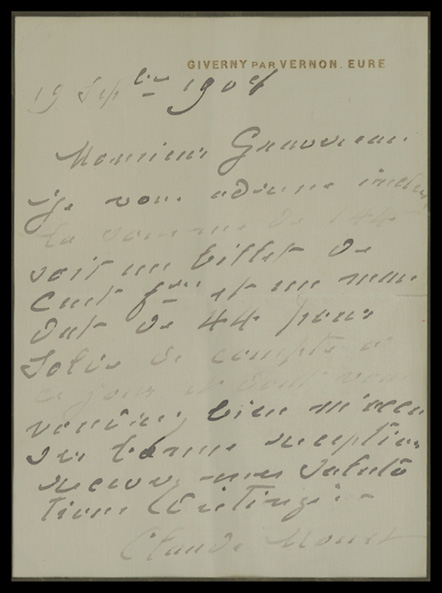 GIVERNY PAR VERNON. EURE
19 Sepbre 1908
Monsieur
Je vous adresse inclus
la somme de 144
soit un billet de
Cent frs et un man
dat de 44 pour
Solde de compte à
ce jour vous
voudrez bien m'accu
ser bonne réception
recevez mes saluta
tions
Claude Monet